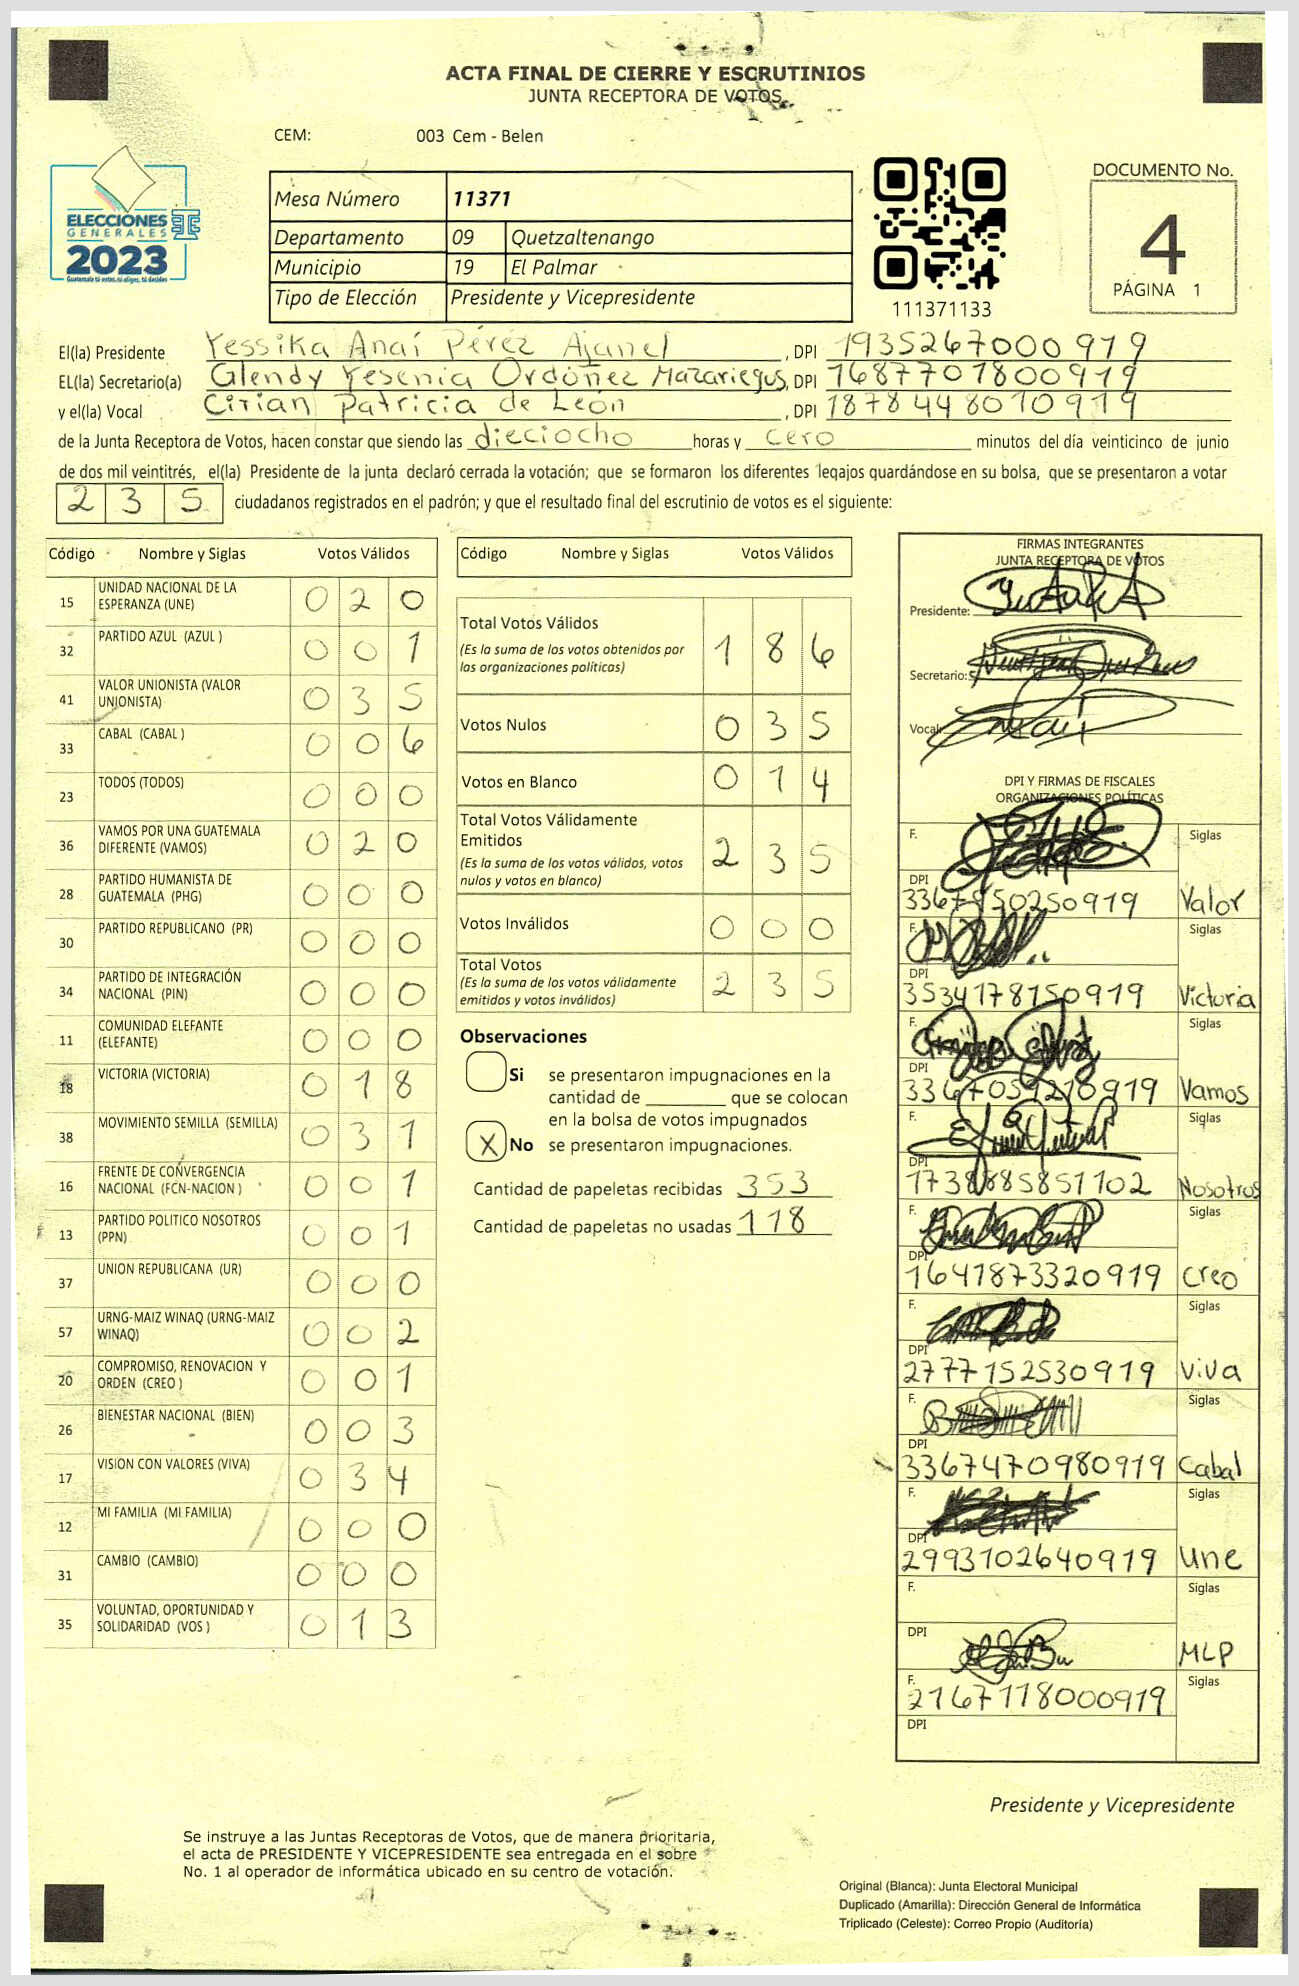 ACTA FINAL DE CIERRE Y ESCRUTINIOS
JUNTA RECEPTORA DE VOTOS
CEM: 003 Cem - Belen
ELECCIONES
GENERALES
2023
Guatemala tú votas, tú eliges, tú decides
Mesa Número 11371
Departamento 09 Quetzaltenango
Municipio 19 El Palmar
Tipo de Elección Presidente y Vicepresidente
111371133
DOCUMENTO No.
4
PÁGINA 1
El(la) Presidente Yessika Anaí Pérez Ajanel, DPI 1935267000919
EL(la) Secretario(a) Glendy Yesenia Ordóñez Mazariegos, DPI 1687701800919
y el(la) Vocal Cirian Patricia de León, DPI 1878448010919
de la Junta Receptora de Votos, hacen constar que siendo las dieciocho horas y cero minutos del día veinticinco de junio
de dos mil veintitrés, el(la) Presidente de la junta declaró cerrada la votación; que se formaron los diferentes legajos quardándose en su bolsa, que se presentaron a votar
2 3 5 ciudadanos registrados en el padrón; y que el resultado final del escrutinio de votos es el siguiente:
Código Nombre y Siglas Votos Válidos
15 UNIDAD NACIONAL DE LA ESPERANZA (UNE) 0 2 0
32 PARTIDO AZUL (AZUL ) 0 0 1
41 VALOR UNIONISTA (VALOR UNIONISTA) 0 3 5
33 CABAL (CABAL ) 0 0 6
23 TODOS (TODOS) 0 0 0
36 VAMOS POR UNA GUATEMALA DIFERENTE (VAMOS) 0 2 0
28 PARTIDO HUMANISTA DE GUATEMALA (PHG) 0 0 0
30 PARTIDO REPUBLICANO (PR) 0 0 0
34 PARTIDO DE INTEGRACIÓN NACIONAL (PIN) 0 0 0
11 COMUNIDAD ELEFANTE (ELEFANTE) 0 0 0
18 VICTORIA (VICTORIA) 0 1 8
38 MOVIMIENTO SEMILLA (SEMILLA) 0 3 1
16 FRENTE DE CONVERGENCIA NACIONAL (FCN-NACION ) 0 0 1
13 PARTIDO POLITICO NOSOTROS (PPN) 0 0 1
37 UNION REPUBLICANA (UR) 0 0 0
57 URNG-MAIZ WINAQ (URNG-MAIZ WINAQ) 0 0 2
20 COMPROMISO, RENOVACION Y ORDEN (CREO ) 0 0 1
26 BIENESTAR NACIONAL (BIEN) 0 0 3
17 VISION CON VALORES (VIVA) 0 3 4
12 MI FAMILIA (MI FAMILIA) 0 0 0
31 CAMBIO (CAMBIO) 0 0 0
35 VOLUNTAD, OPORTUNIDAD Y SOLIDARIDAD (VOS ) 0 1 3
Código Nombre y Siglas Votos Válidos
Total Votos Válidos 1 8 6
(Es la suma de los votos obtenidos por
las organizaciones políticas)
Votos Nulos 0 3 5
Votos en Blanco 0 1 4
Total Votos Válidamente
Emitidos 2 3 5
(Es la suma de los votos válidos, votos
nulos y votos en blanco)
Votos Inválidos 0 0 0
Total Votos 2 3 5
(Es la suma de los votos válidamente
emitidos y votos inválidos)
Observaciones
Si se presentaron impugnaciones en la
cantidad de ________ que se colocan
en la bolsa de votos impugnados
X No se presentaron impugnaciones.
Cantidad de papeletas recibidas 353
Cantidad de papeletas no usadas 118
FIRMAS INTEGRANTES
JUNTA RECEPTORA DE VOTOS
Presidente:
Secretario:
Vocal:
DPI Y FIRMAS DE FISCALES
ORGANIZACIONES POLÍTICAS
F. Siglas
DPI
Valor
F. Siglas
DPI
3534178150919 Victoria
F. Siglas
DPI
Vamos
F. Siglas
DPI
Nosotros
F. Siglas
DPI
1641873320919 Creo
F. Siglas
DPI
2777152530919 Viva
F. Siglas
DPI
3367470980919 Cabal
F. Siglas
DPI
2993102640919 Une
F. Siglas
DPI
MLP
F. Siglas
2167118000919
DPI
Presidente y Vicepresidente
Se instruye a las Juntas Receptoras de Votos, que de manera prioritaria,
el acta de PRESIDENTE Y VICEPRESIDENTE sea entregada en el sobre
No. 1 al operador de informática ubicado en su centro de votación.
Original (Blanca): Junta Electoral Municipal
Duplicado (Amarilla): Dirección General de Informática
Triplicado (Celeste): Correo Propio (Auditoría)